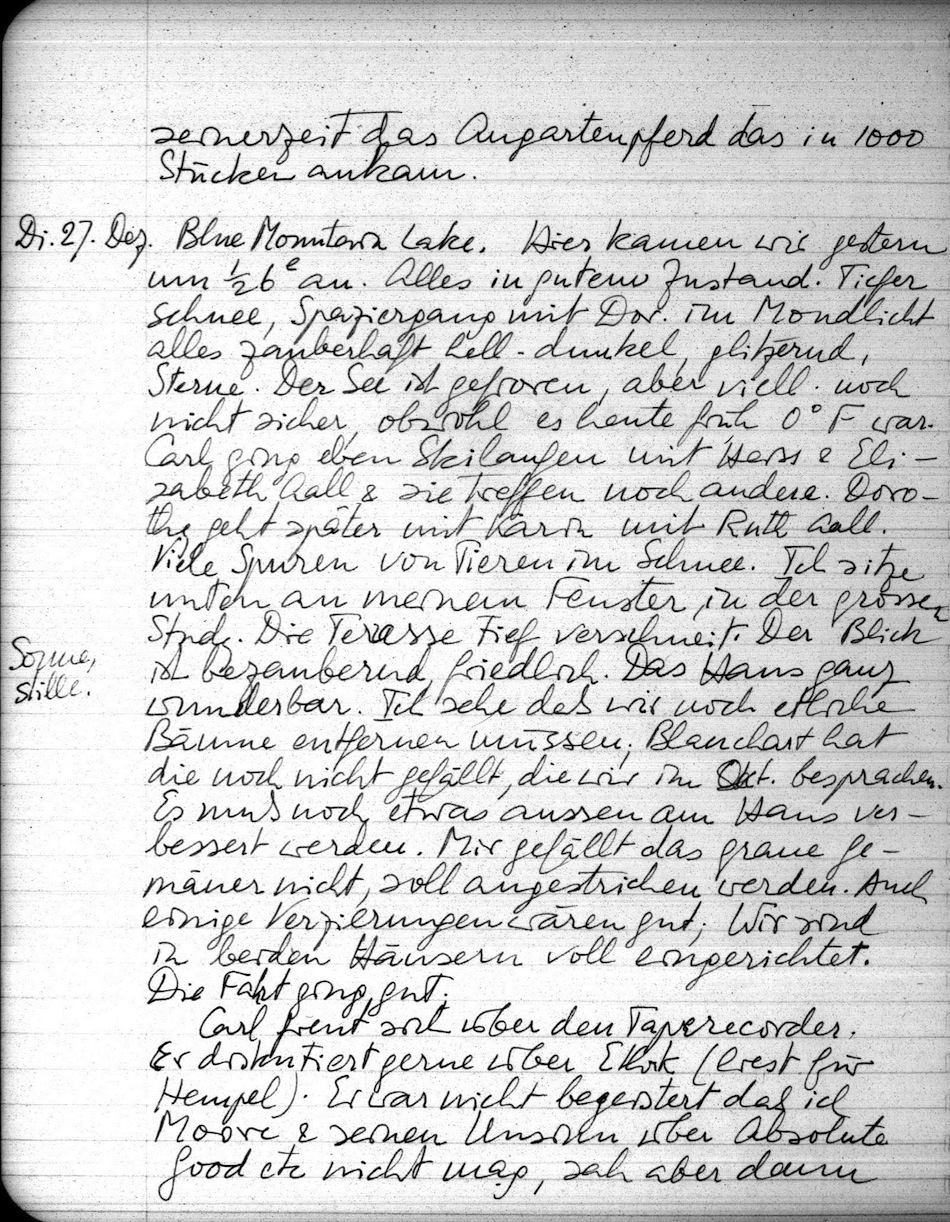 seinerzeit das Augartenpferd das in 1000
Stücken ankam.
Di. 27. Dez. Blue Mountain Lake. Hier kamen wir gestern
um ½6ͤ an. Alles in gutem Zustand. Tiefer
Schnee, Spaziergang mit Dor. im Mondlicht
alles zauberhaft hell-dunkel, glitzernd,
Sterne. Der See ist gefroren, aber viell. noch
nicht sicher, obwohl es heute früh 0° F war.
Carl ging eben Skilaufen mit Hans & Eli-
zabeth Aall & sie treffen noch andere. Doro-
the geht später mit Karin mit Ruth Aall.
Viele Spuren von Tieren im Schnee. Ich sitze
unten an meinem Fenster, in der grossen
Stude. Die Terasse tief verschneit. Der Blick
Sonne,
stille.
ist bezaubernd, friedlich. Das Haus ganz
wunderbar. Ich sehe daß wir noch etliche
Bäume entfernen müssen; Blanchart hat
die noch nicht gefällt, die wir im Okt. besprachen.
Es muß noch etwas aussen am Haus ver-
bessert werden. Mir gefällt das graue Ge-
mäuer nicht, soll angestrichen werden. Auch
einige Verzierungen wären gut; Wir sind
in beiden Häusern voll eingerichtet.
Die Fahrt ging gut.
Carl freut sich über den Taperecorder.
Er diskutiert gerne über Ethik (liest für
Hempel). Er war nicht begeistert daß ich
Moore & seinen Unsinn über Absolute
Good etc nicht mag, sah aber dann